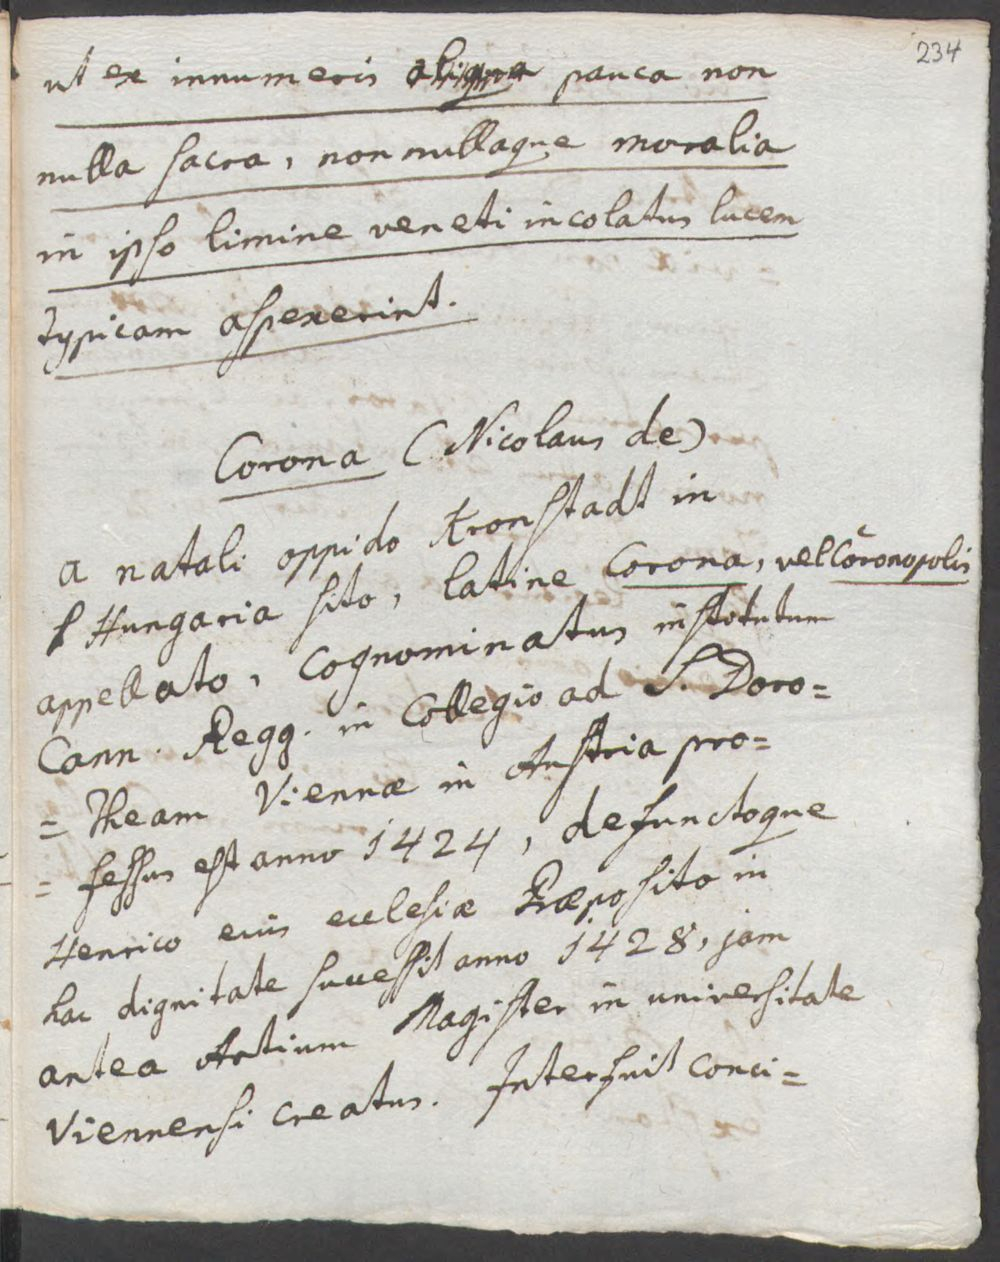 234
ut ex innumeris pauca non
nulla sacra, nonnullaque moralia
in ipso limine veneti incolatus lucem
typicam aspexerint.
Corona (Nicolaus de)
a natali oppido Kronstadt in
Hungaria sito, latine Corona, vel Coronopolis
appellato, cognominatus institutum
Cann. Regg. in Collegio ad S. Doro=
=theam Viennæ in Austria pro=
=fessus est anno 1424, defunctoque
Henrico eius ecclesiæ Præposito in
hac dignitate successit anno 1428, jam
antea Artium Magister in universitate
Viennensi creatus. Interfuit conci=